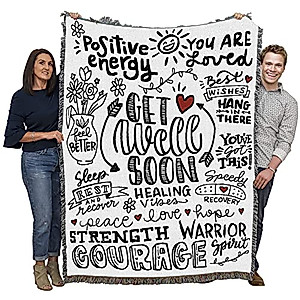 Positive
energy
YOU ARE
Loved
Best
WISHES
HANG
IN
THERE
feel
BETTER
GET
Well
SOON
YOU'VE
Got
THIS!
Sleep
REST
and
recover
HEALING
vibes
Speedy
RECOVERY
peace love hope
STRENGTH
WARRIOR
Spirit
COURAGE